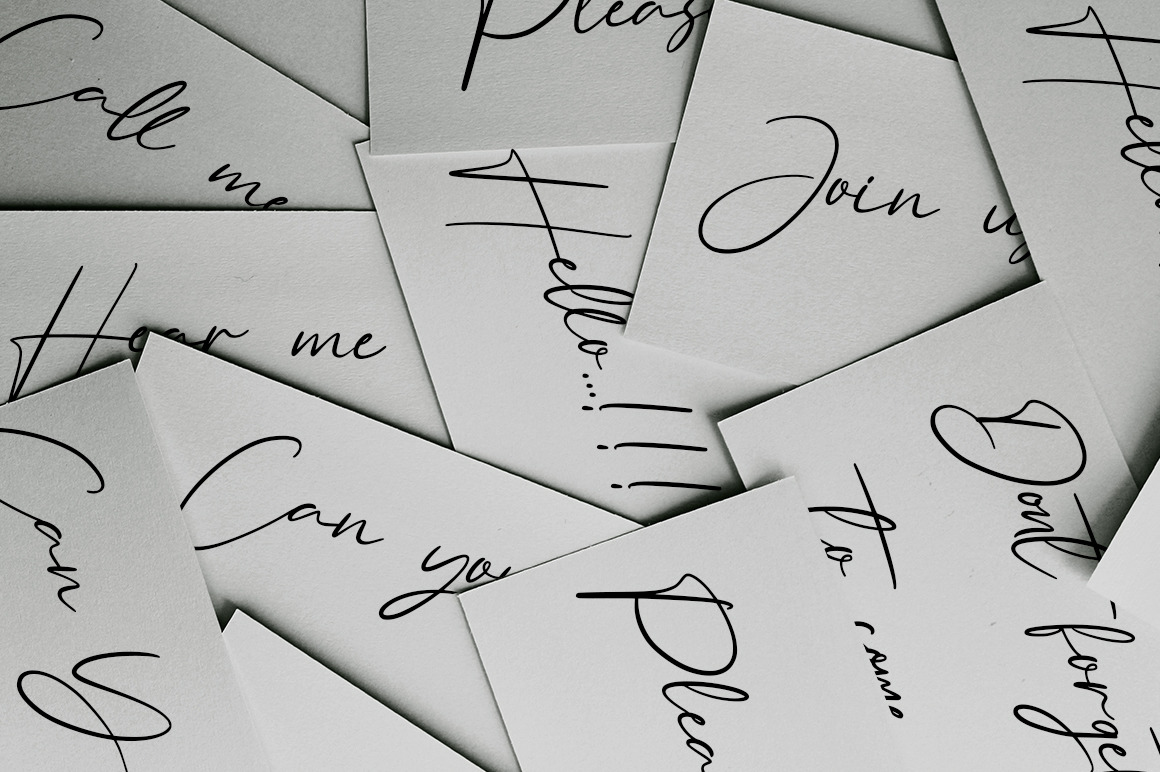 Call me
Pleas
Join us
Hello
Hear me
Hello...!!!
Can you
Can y
Plea
Dont forget
to